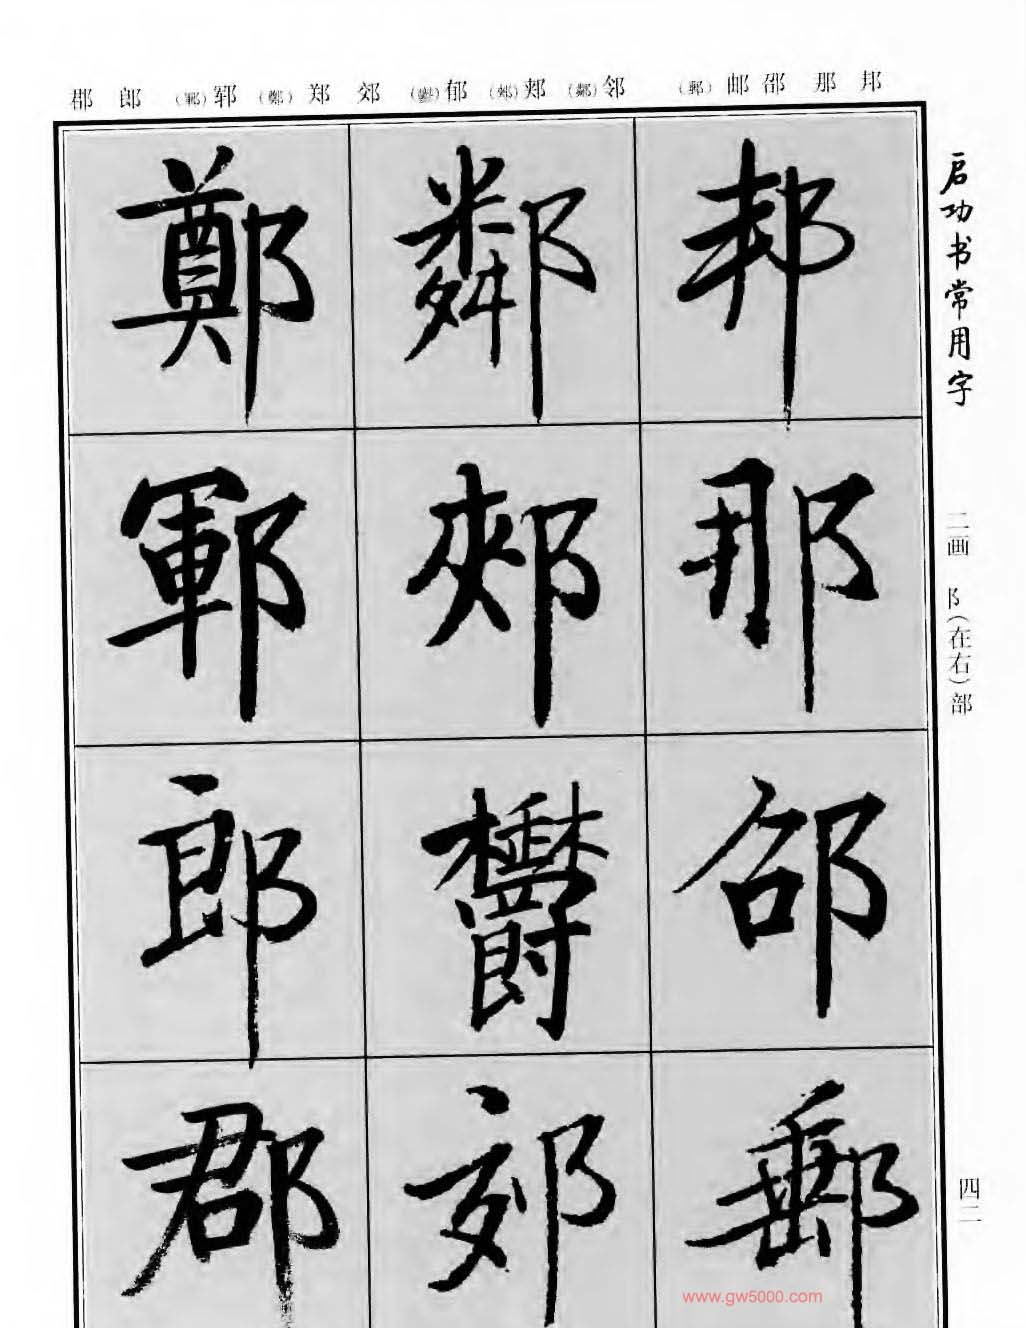 邦 那 邵 邮(郵) 邻(鄰) 郏(郟) 郁(鬱) 郊 郑(鄭) 郓(鄆) 郎 郡
启功书常用字
二画 阝(在右)部
四二
邦
那
邵
郵
鄰
郟
鬱
郊
鄭
鄆
郎
郡
www.gw5000.com